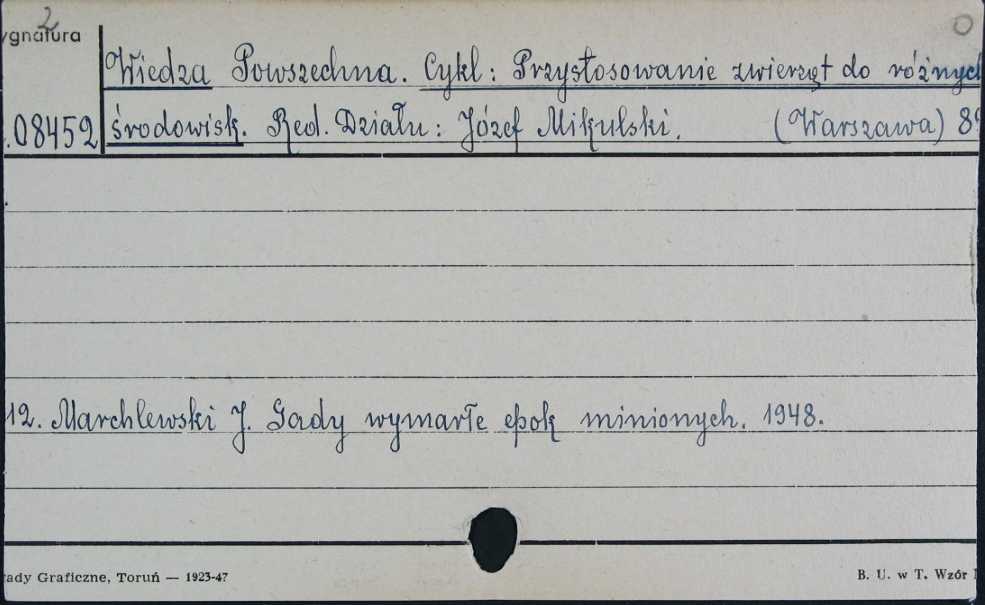 2
ygnatura
Wiedza Powszechna. Cykl: Przystosowanie zwierząt do różnych
.08452 środowisk. Red. Działu: Józef Mikulski. (Warszawa) 8°
12. Marchlewski J. Gady wymarłe epok minionych. 1948.
łady Graficzne, Toruń — 1923-47
B. U. w T. Wzór